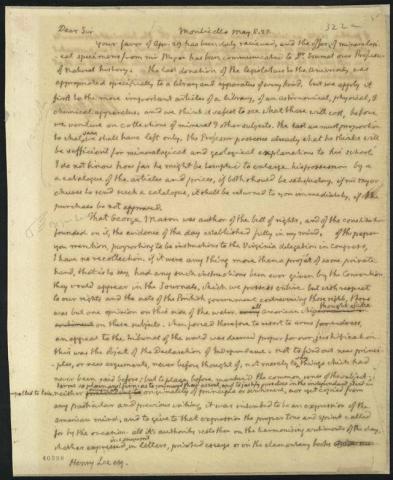 322
Dear Sir Monticello May 8. 25.
Your favor of Apr. 29 has been duly recieved, and the offer of mineralogi-
-cal specimens from mr Myer has been communicated to Dr. Emmet our Professor
of Natural history. the last donation of the legislature to the University was
appropriated specifically to a library and apparatus of every kind. but we apply it
first to the more important articles of a library, of an astronomical, physical, &
chemical apparatus. and we think it safest to see what these will cost, before
we venture on collections of mineral & other subjects. the last we must proportion
to what sum we shall have left only. the Professor possesses already what he thinks will
be sufficient for mineralogical and geological explanations to his school.
I do not know how far he might be tempted to enlarge his possession by a
catalogue of the articles and prices, if both should be satisfactory. if mr Myer
chuses to send such a catalogue, it shall be returned to you immediately, if the
purchase be not approved.
That George Mason was author of the bill of rights, and of the constitution
founded on it, the evidence of the day established fully in my mind. of the paper
you mention, purporting to be instructions to the Virginia delegation in Congress,
I have no recollection. if it were any thing more than a project of some private
hand, that is to say, had any such instructions been ever given by the Convention,
they would appear in the Journals, which we possess entire. but with respect
to our rights and the acts of the British government contravening those rights, there
was but one opinion on this side of the water. all American whigs thought alike
on these subjects. when forced therefore to resort to arms for redress,
an appeal to the tribunal of the world was deemed proper for our justification.
this was the object of the Declaration of Independance. not to find out new princi-
ples, or new arguments, never before thought of, not merely to say things which had
never been said before; but to place before mankind the common sense of the subject;
terms so plain and firm as to command their assent, and to justify ourselves in the independant stand we
compelled to take. neither aiming at originality of principle or sentiment, nor yet copied from
any particular and previous writing, it was intended to be an expression of the
american mind, and to give to that expression the proper tone and spirit called
for by the occasion. all it's authority rests then on the harmonising sentiments of the day,
whether expressed in conversns in letters, printed essays or in the elementary books
40598
Henry Lee esq.